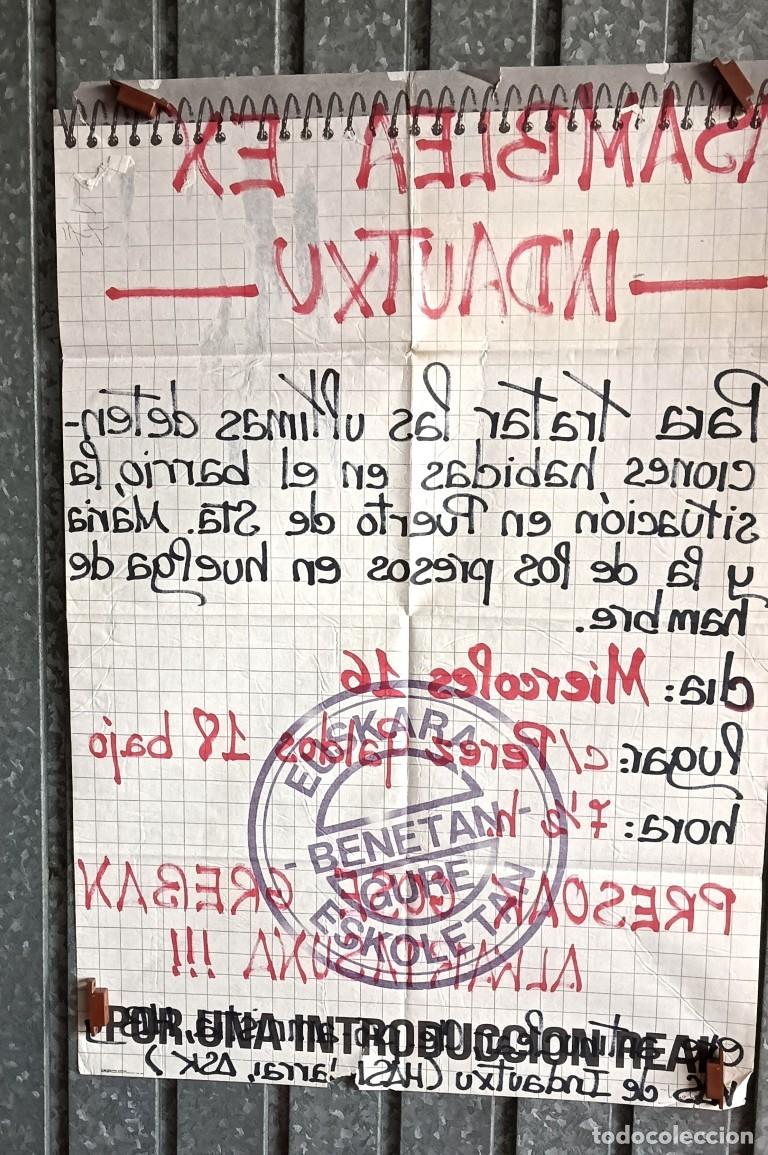 ASAMBLEA EX
— INDAUTXU —
Para tratar las ultimas deten-
ciones habidas en el barrio, la
situación en Puerto de Sta. Maria
y la de los presos en huelga de
hambre.
dia: Miercoles 16
lugar: c/Perez Galdos 18 bajo
hora: 7½ h.
PRESOAK GOSE GREBAN
ALKARTASUNA !!!
EUSKARA
- BENETAN -
GURE
ESKOLETAN
POR UNA INTRODUCCION REAL
de Indautxu (HASI, Jarrai, ASK)
todocoleccion